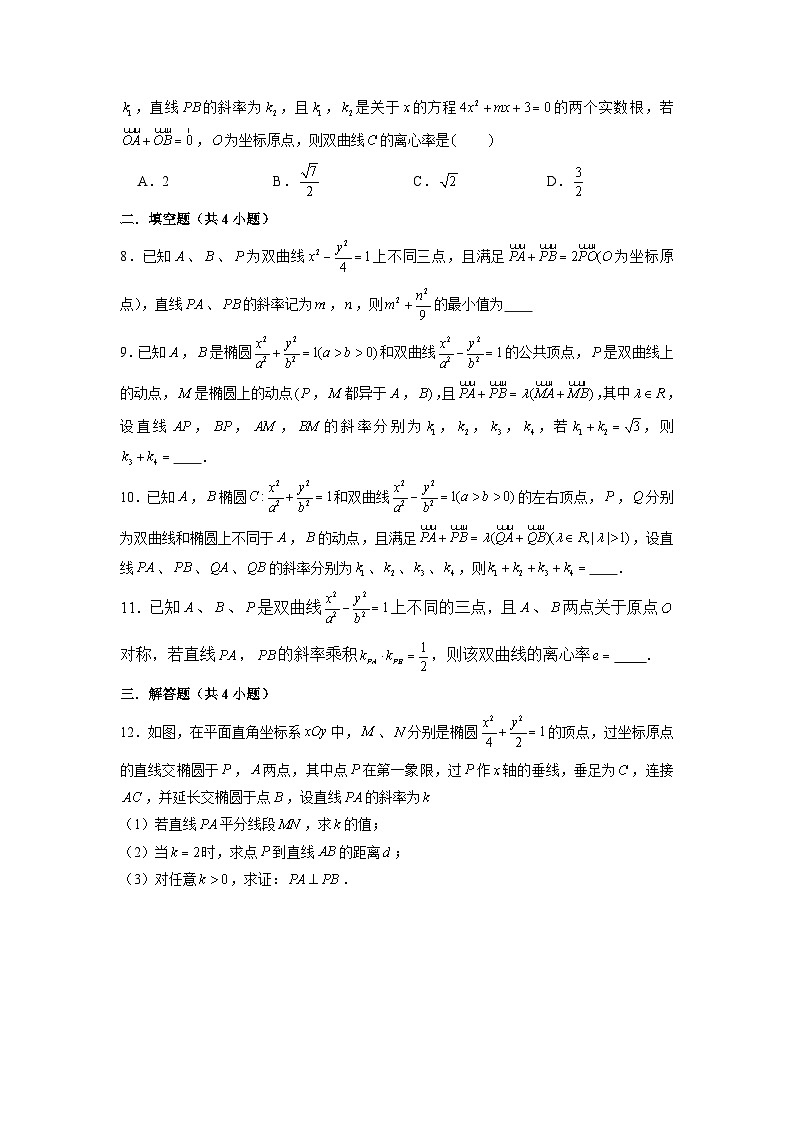 k₁，直线PB的斜率为k₂，且k₁，k₂是关于x的方程4x²+mx+3=0的两个实数根，若
OA+OB=0，O为坐标原点，则双曲线C的离心率是(　　)
A．2　　B．√7/2　　C．√2　　D．3/2
二．填空题（共4小题）
8．已知A、B、P为双曲线x²−y²/4=1上不同三点，且满足PA+PB=2PO(O为坐标原
点)，直线PA、PB的斜率记为m，n，则m²+n²/9的最小值为____
9．已知A，B是椭圆x²/a²+y²/b²=1(a>b>0)和双曲线x²/a²−y²/b²=1的公共顶点，P是双曲线上
的动点，M是椭圆上的动点(P，M都异于A，B)，且PA+PB=λ(MA+MB)，其中λ∈R，
设直线AP，BP，AM，BM的斜率分别为k₁，k₂，k₃，k₄，若k₁+k₂=√3，则
k₃+k₄ ____．
10．已知A，B椭圆C:x²/a²+y²/b²=1和双曲线x²/a²−y²/b²=1(a>b>0)的左右顶点，P，Q分别
为双曲线和椭圆上不同于A，B的动点，且满足PA+PB=λ(QA+QB)(λ∈R,|λ|>1)，设直
线PA、PB、QA、QB的斜率分别为k₁、k₂、k₃、k₄，则k₁+k₂+k₃+k₄=____．
11．已知A、B、P是双曲线x²/a²−y²/b²=1上不同的三点，且A、B两点关于原点O
对称，若直线PA，PB的斜率乘积k_PA·k_PB=1/2，则该双曲线的离心率e=____．
三．解答题（共4小题）
12．如图，在平面直角坐标系xOy中，M、N分别是椭圆x²/4+y²/2=1的顶点，过坐标原点
的直线交椭圆于P，A两点，其中点P在第一象限，过P作x轴的垂线，垂足为C，连接
AC，并延长交椭圆于点B，设直线PA的斜率为k
（1）若直线PA平分线段MN，求k的值；
（2）当k=2时，求点P到直线AB的距离d；
（3）对任意k>0，求证：PA⊥PB．